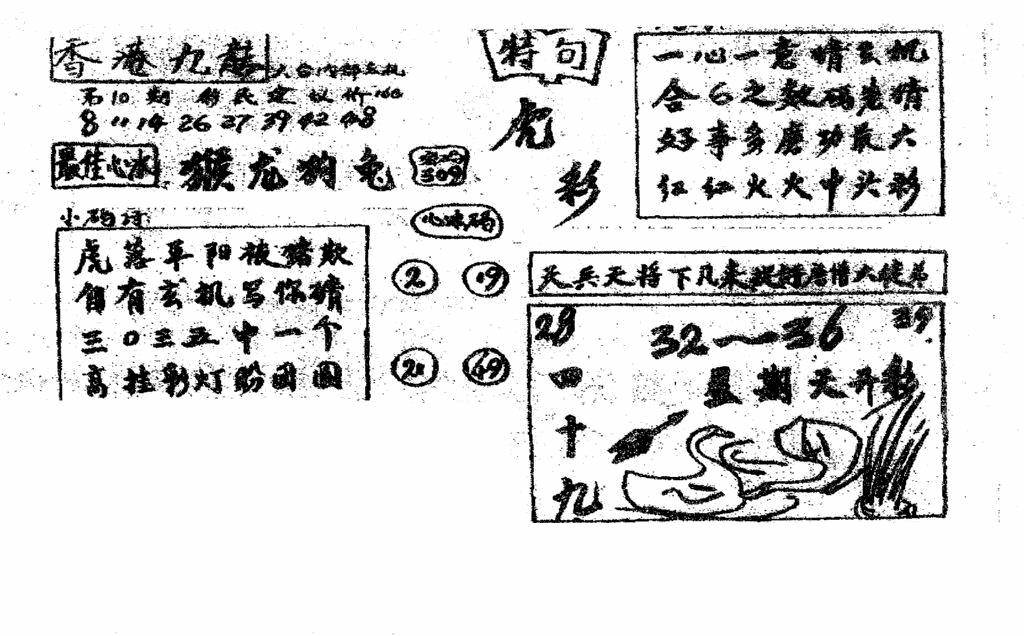 香港九龙
第10期
8 11 14 26 27 39 42 48
最佳心水 猴龙狗兔
309
小码诗
虎落平阳被猪欺
自有玄机写你猜
三0三五中一个
高挂彩灯盼团圆
心水码
2 19
21 49
特句
虎
彩
一心一意猜玄机
合6之数码老猜
好事多磨功最大
红红火火中头彩
天兵天将下凡来捉拷唐僧大徒弟
28 32—36 39
星期天开彩
四十九